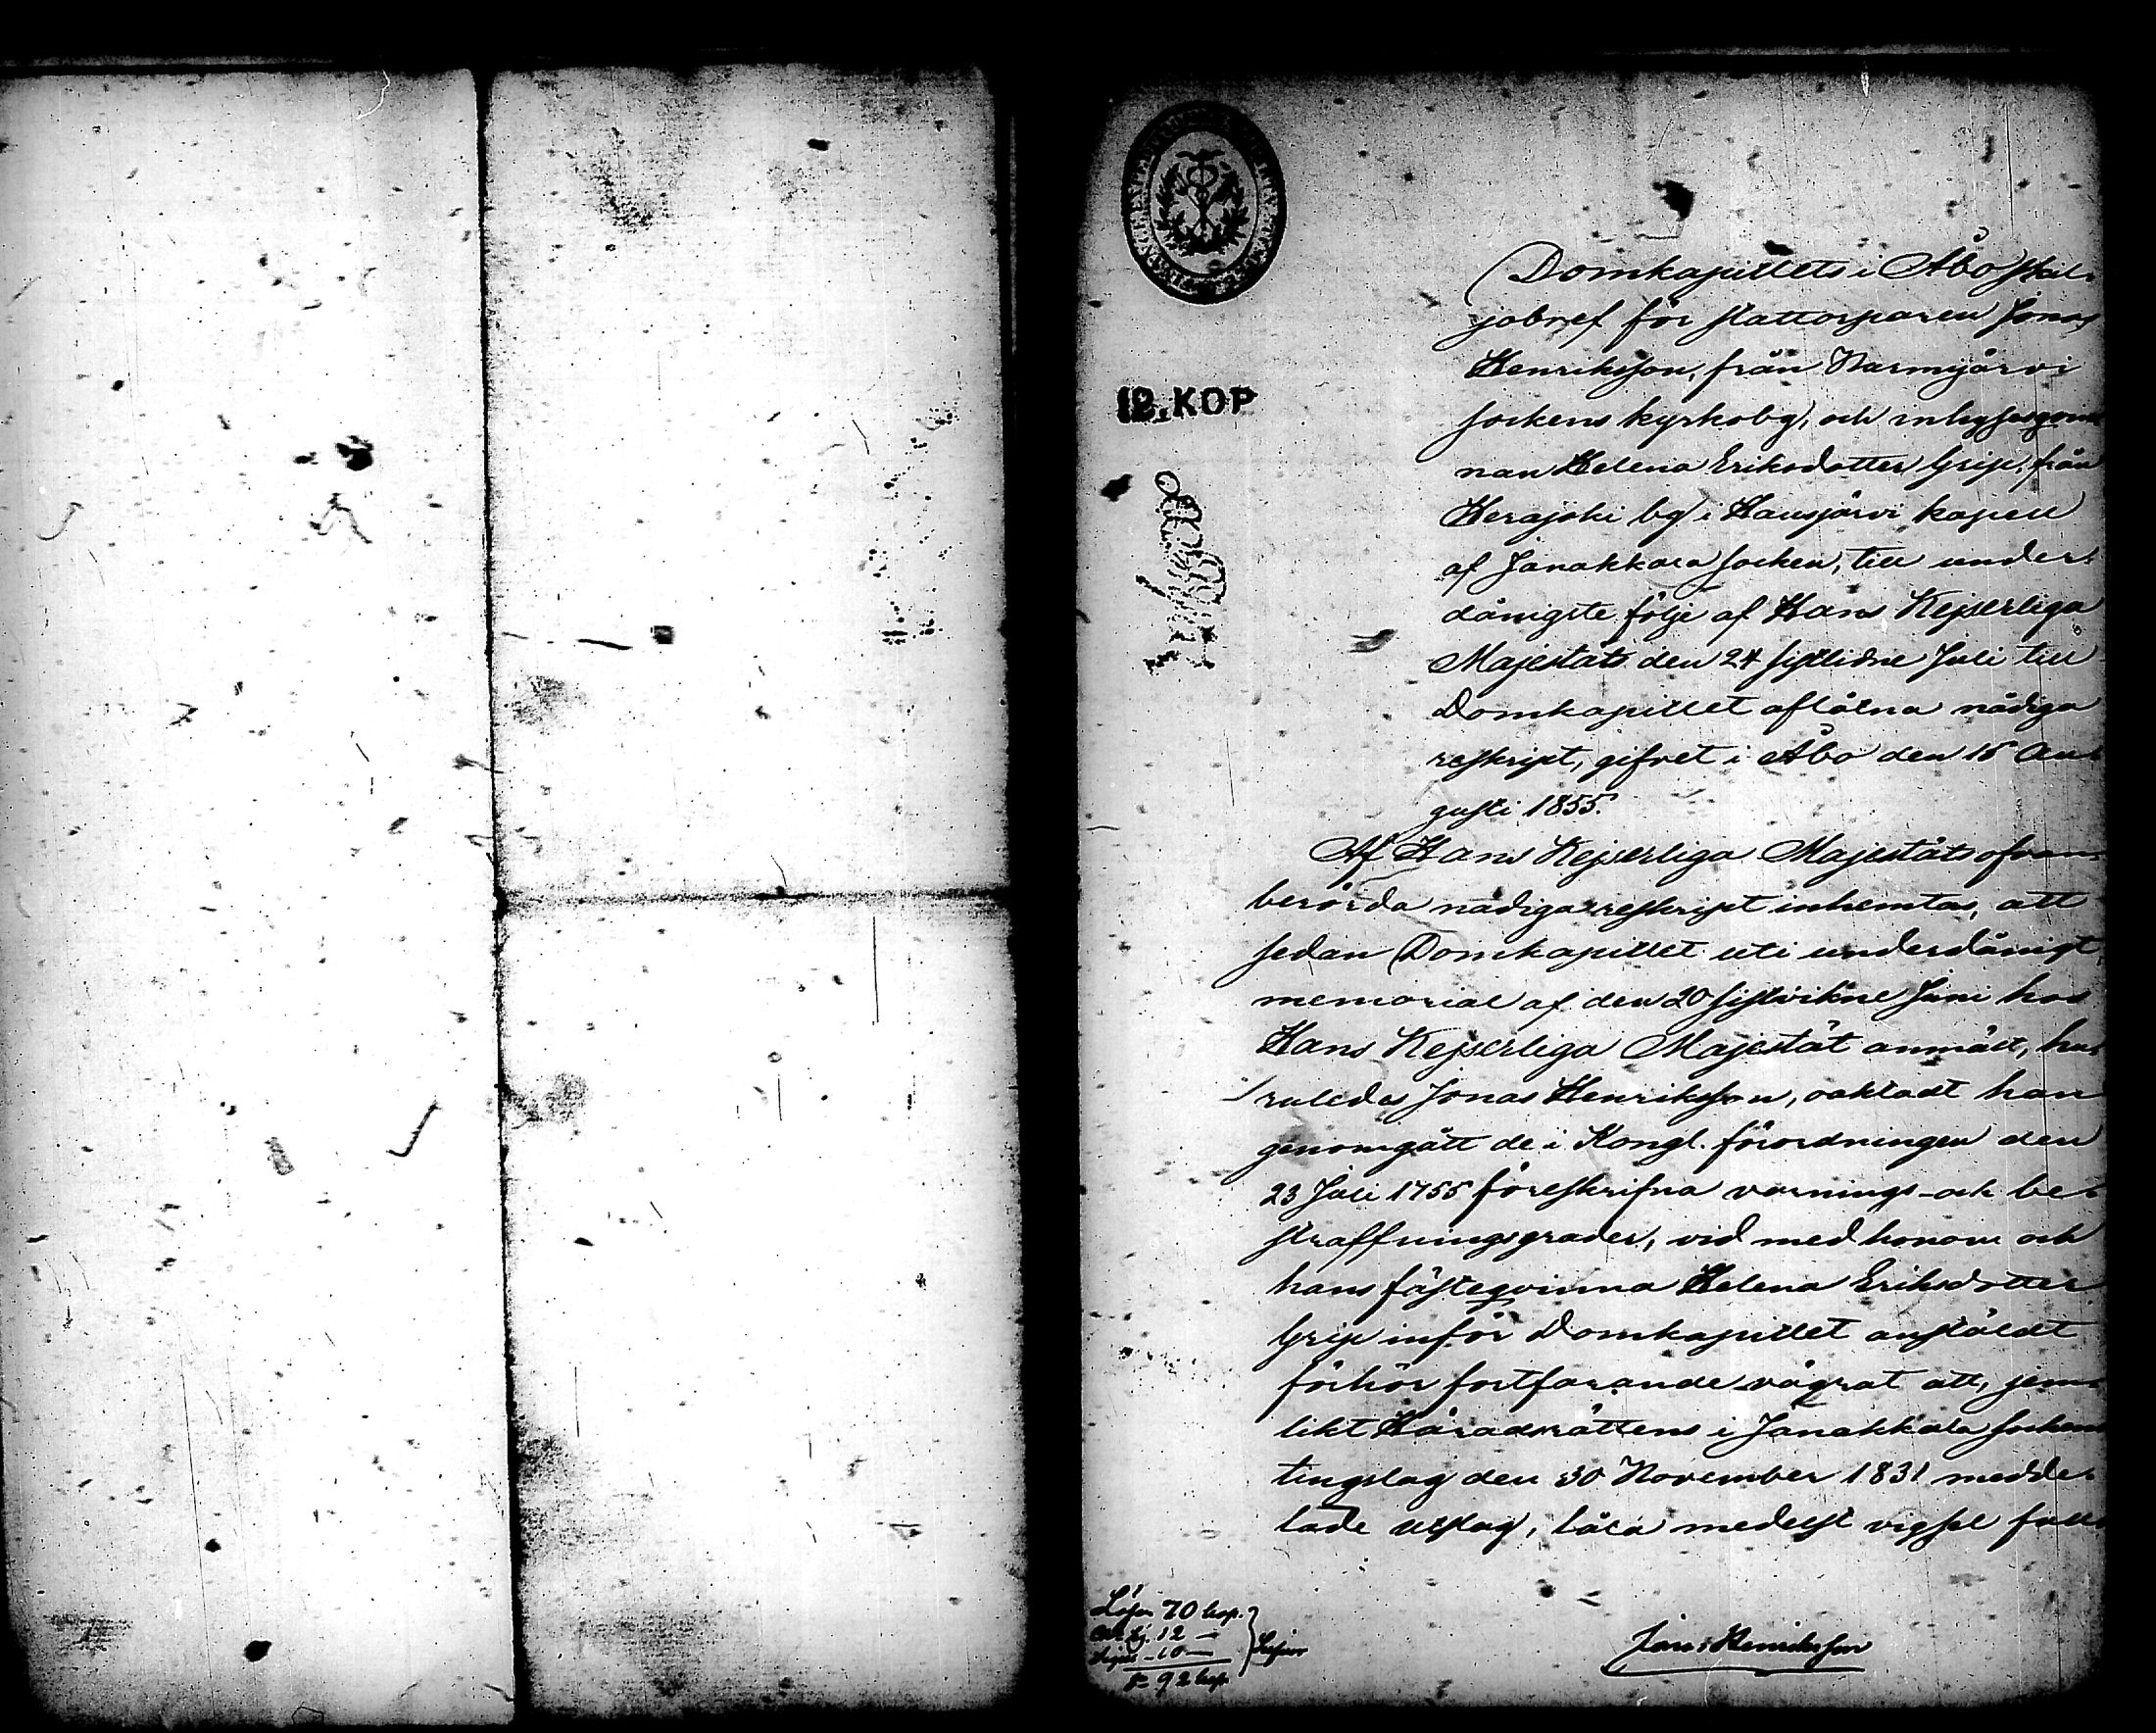 12. KOP
Domkapitlets i Åbo skil-
jobref för stattorparen Jonas
Henriksson, från Nurmijärvi
sockens kyrkoby, och inhysesqvin-
nan Helena Eriksdotter Grip, från
Kerajoki by i Hausjärvi kapell
af Janakkala socken, till under-
dånigste följe af Hans Kejserliga
Majestäts den 24 sistlidne Juli till
Domkapitlet aflåtna nådiga
reskript, gifvet i Åbo den 15 Au-
gusti 1855.
Af Hans Kejserliga Majestäts ofvan-
berörda nådiga reskript inhemtas, att
sedan Domkapitlet uti underdånigt
memorial af den 20 sistvikne Juni hos
Hans Kejserliga Majestät anmält, hu-
ruledes Jonas Henriksson, oaktadt han
genomgått de i Kongl. förordningen den
23 Juli 1755 föreskrifna varnings- och be-
straffningsgrader, vid med honom och
hans fästeqvinna Helena Eriksdotter
Grip inför Domkapitlet anstäldt
förhör fortfarande vägrat att, jem-
likt Häradsrättens i Janakkala sockens
tingslag den 30 November 1831 medde-
lade utslag, låta medelst vigsel full-
Lösen 70 kop.
12 —
10 —
92 kop
Jonas Henriksson